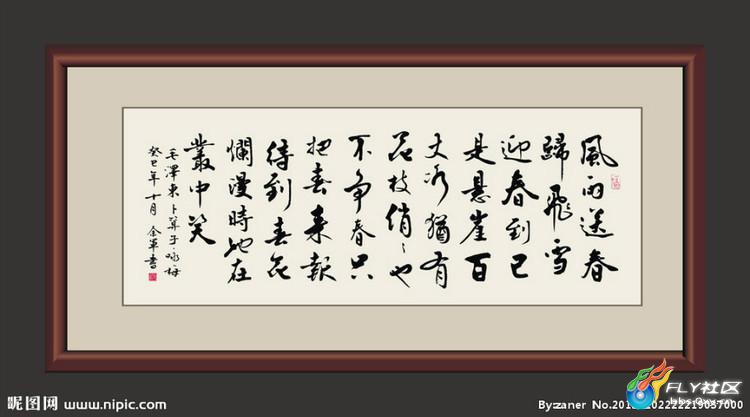 風雨送春
歸飛雪
迎春到已
是懸崖百
丈冰猶有
花枝俏〻也
不争春只
把春来報
待到春花
爛漫時她在
叢中笑
毛澤東卜算子·咏梅
癸巳年十月 軍書
昵图网 www.nipic.com
Byzaner
FLY社区